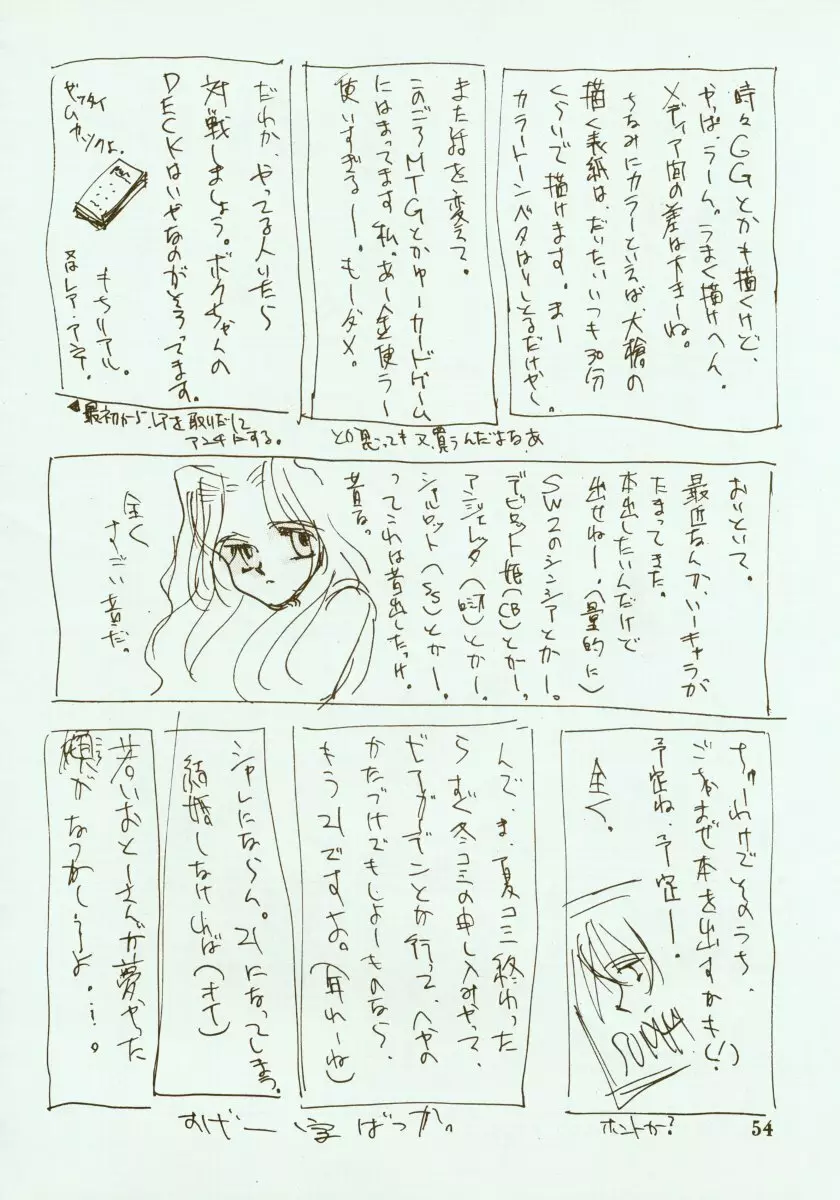 時々GGとかも描くけど、
やっぱ、うーん。うまく描けへん。
メディア間の差は大きーね。
ちなみにカラーといえば、犬槍の
描く表紙は、だいたいいつも30分
くらいで描けます。まー
カラートーンベタはりしとるだけやし。
また話を変えて。
このごろMTGとかゆーカードゲーム
にはまってます私。あー金使うー
使いすぎるー。もーダメ。
と思っても又、買うんだよなぁ
だれか、やってる人いたら
対戦しましょう。ボクちゃんの
DECKはいやなのがそろってます。
◀最初から、レアを取りだして
アンチにする。
おいといて。
最近なんか、いーキャラが
たまってきた。
本出したいんだけど
出せねー。(量的に)
SW2のシンシアとかー。
デビロット姫(CB)とかー。
アンジェレッタ
シャルロット(SS)とかー。
ってこれは昔出したっけ。
昔な。
全く
すごい昔だ。
ちゅーわけでそのうち、
ごちゃまぜ本を出すかも(!)
予定ね、予定ー。
全く。
ホントか?
んで、ま、夏コミ終わった
らすぐ冬コミの申し込みやって、
ビアガーデンとか行って、へやの
かたづけでもしよーものなら、
もう21ですな。
シャレにならん。21になってしまう。
結婚しなければ(オイ)
若いおとーさんが夢やった
頃がなつかしいよ。…。
字ばっか。
54